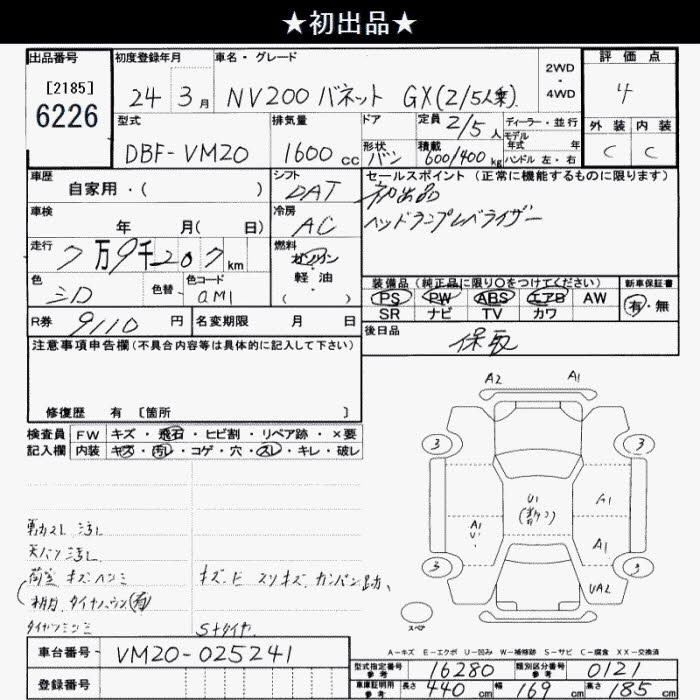 ★初出品★
出品番号
[2185]
6226
初度登録年月
24年 3月
車名・グレード
NV200 バネット GX(2/5人乗)
2WD
・
4WD
評価点
4
外装 内装
C C
型式
DBF-VM20
排気量
1600cc
ドア
形状
バン
定員 2/5人
積載
600/400kg
ディーラー・並行
モデル
年式 年
ハンドル 左・右
車歴
自家用・( )
シフト
DAT
車検
年 月( 日)
冷房
AC
走行
7万9千207km
燃料
ガソリン
・
軽・油
( )
色
色替
色コード
R券
9110円
名変期限 月 日
セールスポイント (正常に機能するものに限ります)
初出品
ヘッドランプレベライザー
装備品 (純正品に限り〇をつけてください)
新車保証書
PS PW ABS エアB AW
SR ナビ TV カワ
有・無
後日品
保取
注意事項申告欄 (不具合内容等は具体的に記入して下さい)
修復歴 有 〔箇所 〕
検査員 FW キズ・飛石・ヒビ割・リペア跡・×要
記入欄 内装 キズ・汚レ・コゲ・穴・スレ・キレ・破レ
天バン汚レ
荷室 キズヘコミ
Sタイヤ
A2 A1
3 3
U1
A1
A1
U1
A1
UA2
3 3
スペア
A-キズ E-エクボ U-凹み W-補修跡 S-サビ C-腐食 XX-交換済
車台番号 VM20-025241
登録番号
型式指定番号
参考
16280
類別区分番号
参考
0121
車庫証明用
参考
長さ 440cm 幅 169cm 高さ 185cm